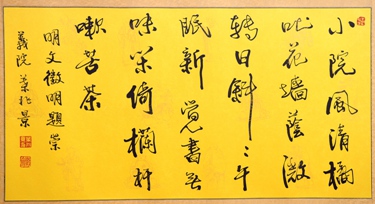 小院風清橘
吐花墻蔭微
轉日斜〻午
眠新覺書無
味閑倚欄杆
嗽苦茶
明文徵明題榮
義院 葉景